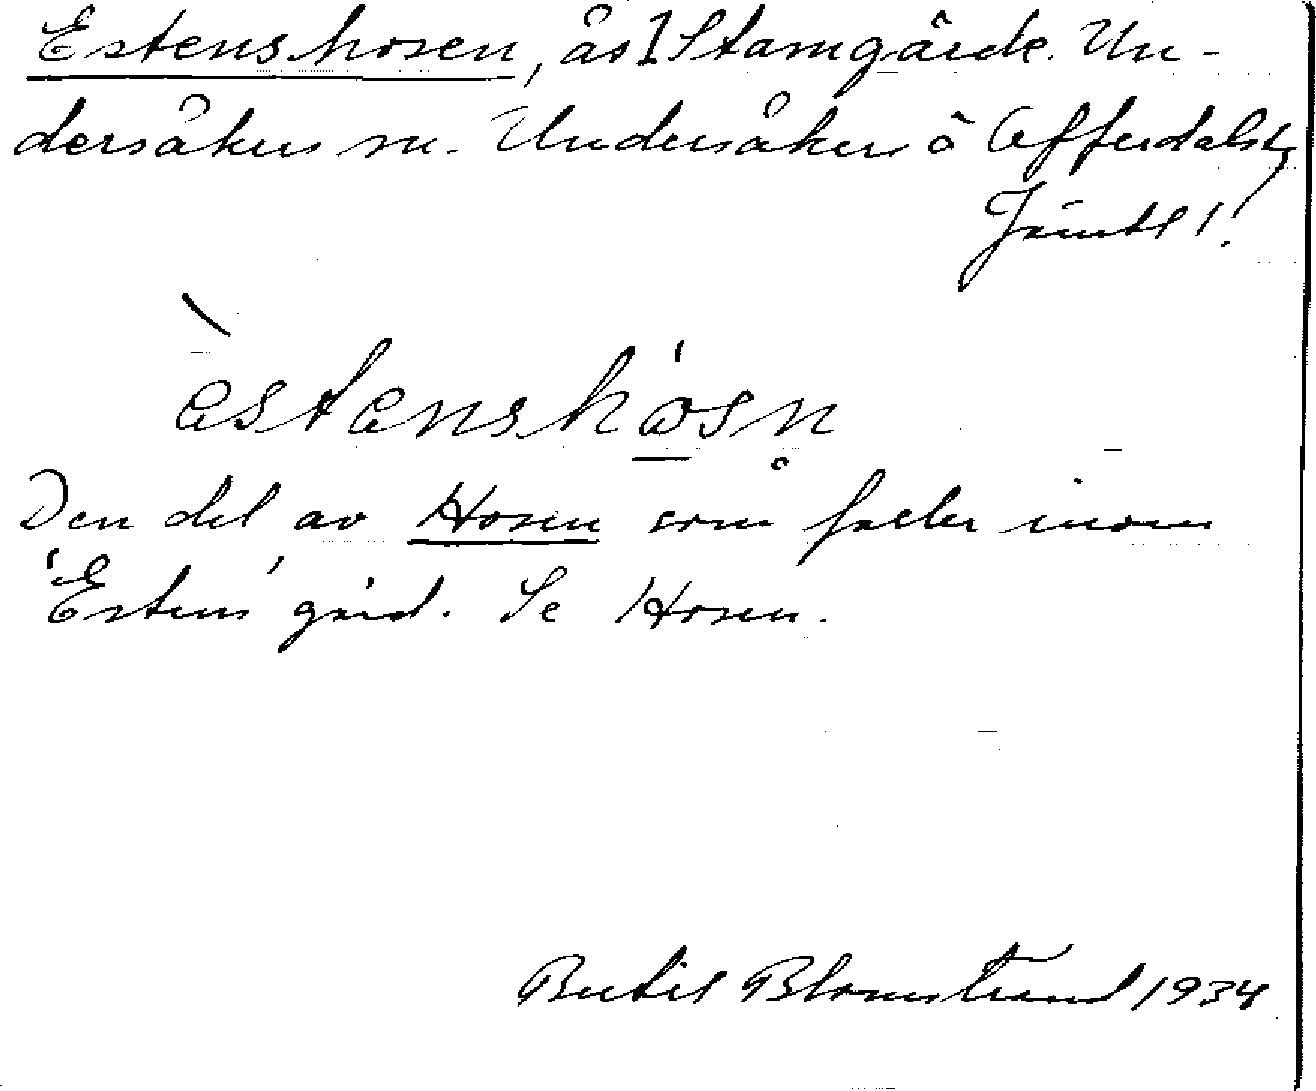 Estenshosen, ås I Stamgärde. Un-
dersåkers sn. Undersåkers o Offerdals tg
Jämtl.
èstenshòsn̥
Den del av Hosen som faller inom
"Estens" gård. Se Hosen.
Bertil Blomstrand 1934